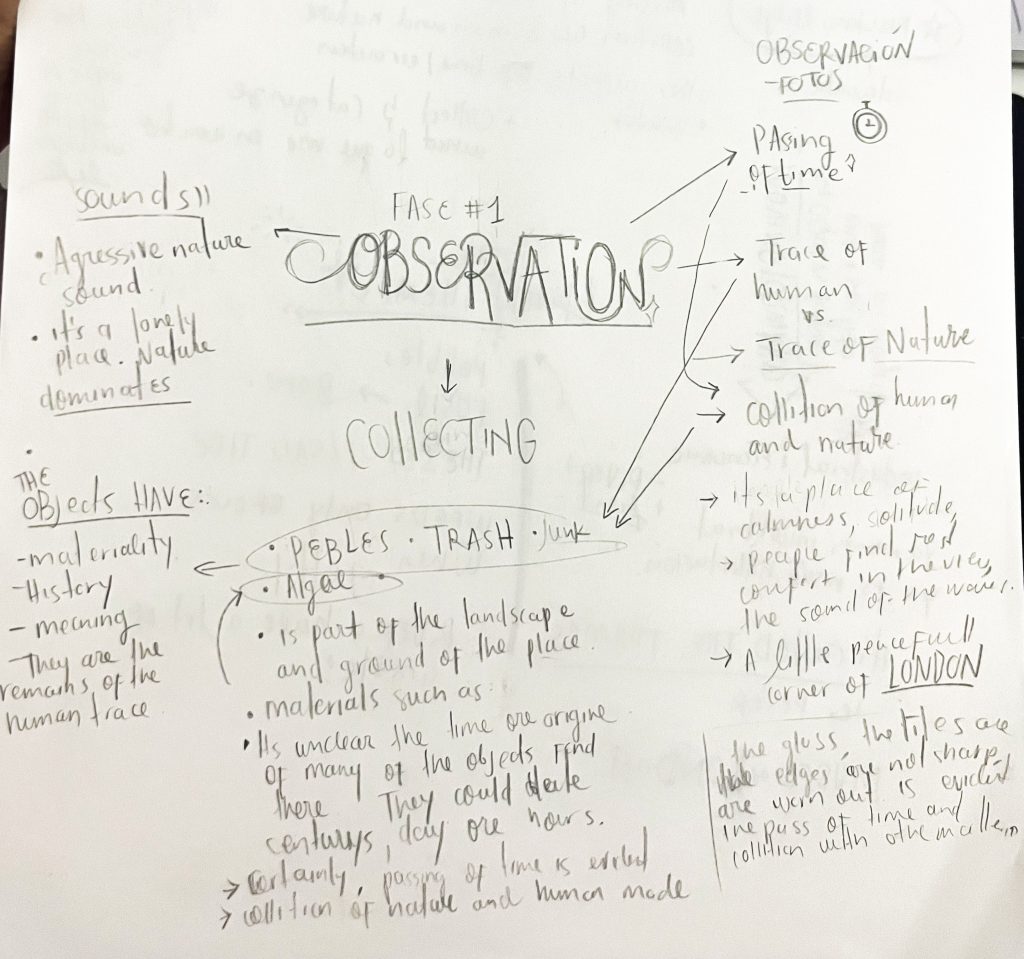 FASE #1
OBSERVATION
COLLECTING
sounds))
• Agressive nature
sound.
• it's a lonely
place. Nature
dominates
THE
OBjects HAVE:.
- materiality
- History
- meaning
- They are the
remains of the
human trace
• PEBLES • TRASH • Junk
• Algae •
• is part of the landscape
and ground of the place.
• materials such as:
• Its unclear the time ore origine
of many of the objects find
there They could date
centurys, day ore hours.
→ certainly, passing of time is evident
→ collition of nature and human made
OBSERVACIÓN
- FOTOS
PAsing
of time
Trace of
human
vs.
Trace of Nature
collition of human
and nature
→ its a place of
calmness, solitude,
→ people find
confort in the view,
the sound of the waves.
→ A little peacefull
corner of LONDON
the glass, the tiles are
edges are not sharp
are worn out is evident
the pass of time and
collition with othe